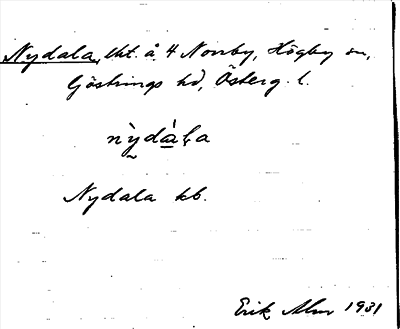 Nydala, lht. å 4 Norrby, Högby sn,
Göstrings hd, Österg. l.
nỳdàḷa
Nydala kb.
Erik Alm 1931